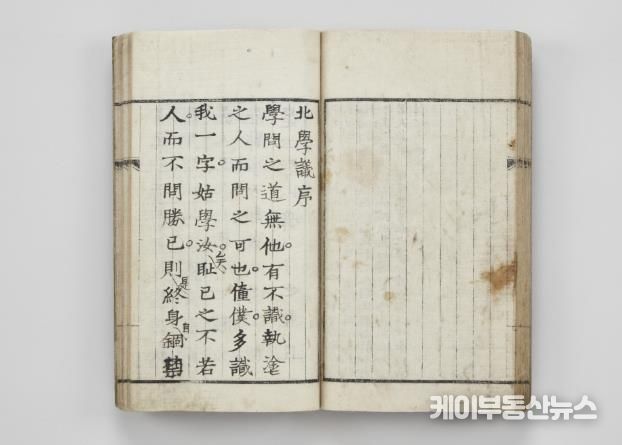 北學議序
學問之道無他。有不識。執塗
之人而問之可也。僮僕多識
我一字姑學汝。矣恥己之不若
人而不問勝己。則是終身自錮
케이부동산뉴스